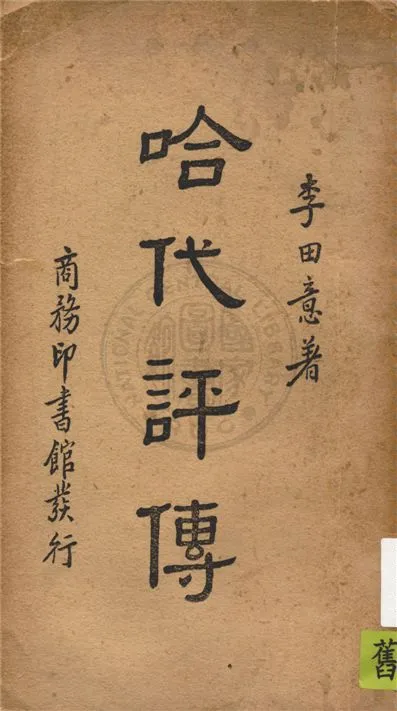 李田意著
哈代評傳
商務印書館發行
NATIONAL CENTRAL LIBRARY
舊